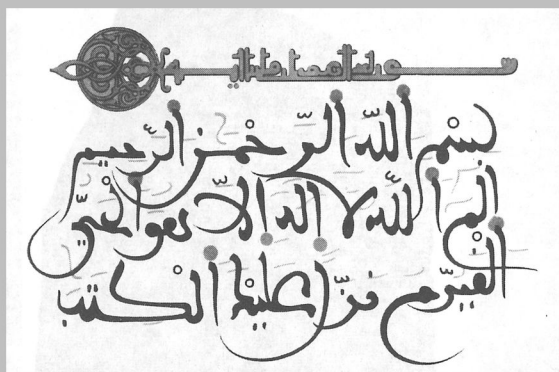 بِسْمِ اِللَّهِ اِلرَّحْمَٰنِ اِلرَّحِيمِ
أَلَمِّٓ اَللَّهُ لَآ إِلَٰهَ إِلَّا هُوَ اَلْحَيُّ
اُلْقَيُّومُ نَزَّلَ عَلَيْكَ اَلْكِتَٰبَ